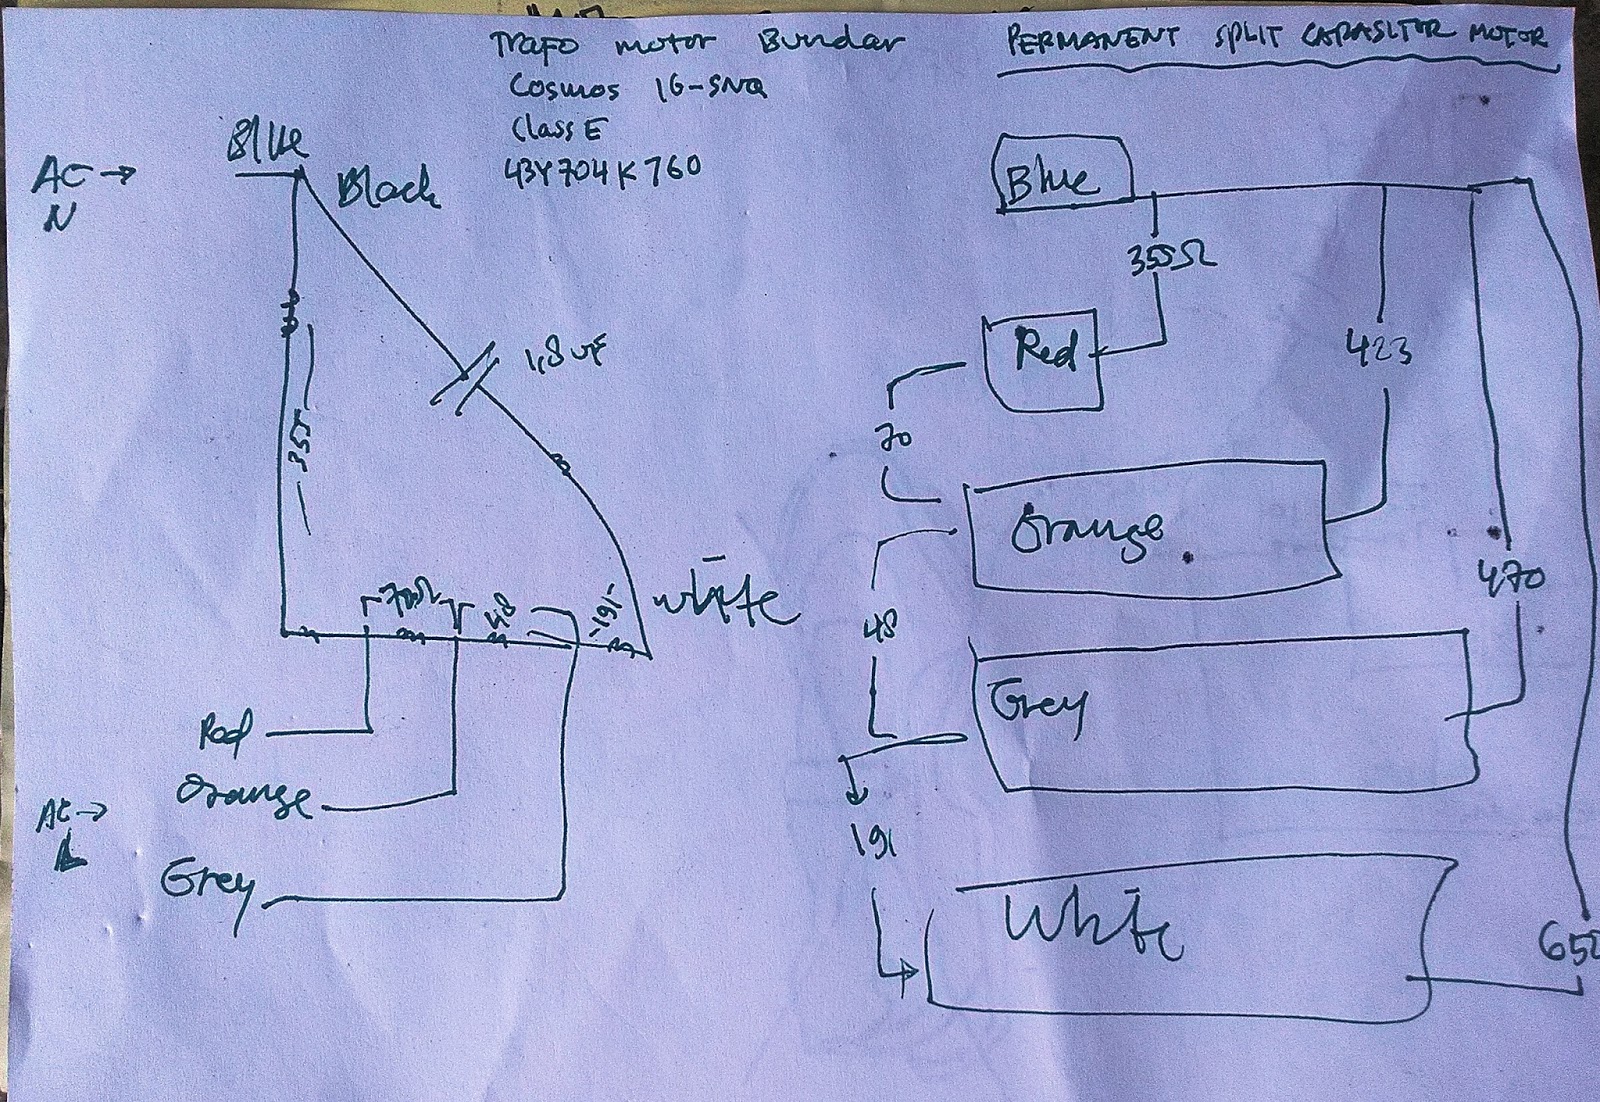 Trafo motor Bundar
Cosmos 16-SNQ
Class E
43Y704K760
PERMANENT SPLIT CAPASITOR MOTOR
AC →
N
Blue
Black
1,8 uF
355
70Ω
48
191
white
Red
Orange
Grey
AC →
L
Blue
355Ω
Red
423
70
Orange
470
48
Grey
191
White
652